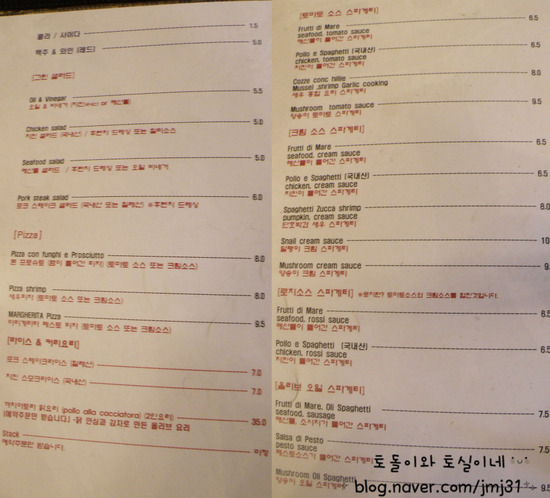 콜라 / 사이다 1.5
맥주 & 와인 (레드) 5.0
[그린 샐러드]
Oil & Vinegar 5.5
오일 & 비네가 (치킨 or 해산물)
Chicken salad 5.0
치킨 샐러드 (국내산) / 후렌치 드레싱 또는 칠리소스
Seafood salad 5.0
해산물 샐러드 / 후렌치 드레싱 또는 오일 비네가
Pork steak salad 6.0
포크 스테이크 샐러드 (국내산 또는 칠레산) ※후렌치 드레싱
[Pizza]
Pizza con funghi e Prosciutto 8.0
폰 포로슈토 (햄이 들어간 피자) (토마토 소스 또는 크림소스)
Pizza shrimp 8.0
새우피자 (토마토 소스 또는 크림소스)
MARGHERITA Pizza 9.5
마리게리타 페스토 피자 (토마토 소스 또는 크림소스)
[라이스 & 케리요리]
포크 스테이크라이스 (칠레산) 7.0
치킨 스모크라이스 (국내산) 7.0
까치아토리 닭요리 (pollo alla cacciatora) (2인요리) 35.0
(예약주문만 받습니다) -닭 안심과 감자로 만든 올리브 요리
Stack
예약주문만 받습니다.
[토마토 소스 스파게티]
Frutti di Mare 6.5
seafood, tomato sauce
해산물이 들어간 스파게티
Pollo e Spaghetti (국내산) 6.5
chicken, tomato sauce
치킨이 들어간 스파게티
Cozze conc hillie
Mussel ,shrimp Garlic cooking
새우 홍합 요리 스파게티
Mushroom tomato sauce 9.5
양송이 토마토 스파게티
[크림 소스 스파게티]
Frutti di Mare 6.5
seafood, cream sauce
해산물이 들어간 스파게티
Pollo e Spaghetti (국내산) 6.5
chicken, cream sauce
치킨이 들어간 스파게티
Spaghetti Zucca shrimp 8.0
pumpkin, cream sauce
단호박과 새우 스파게티
Snail cream sauce 10
달팽이 크림 스파게티
Mushroom cream sauce 9.
양송이 크림 스파게티
[로지소스 스파게티] ※로지란? 토마토소스와 크림소스를 합한것입니다.
Frutti di Mare 6.5
seafood, rossi sauce
해산물이 들어간 스파게티
Pollo e Spaghetti (국내산) 6.5
chicken, rossi sauce
치킨이 들어간 스파게티
[올리브 오일 스파게티]
Frutti di Mare, Oli Spaghetti 7.5
seafood, sausage
해산물, 소시지가 들어간 스파게티
Salsa di Pesto 7.5
pesto sauce
페스토소스가 들어간 스파게티
Mushroom Oli Spaghetti 9.5
양송이 오일 스파게티
토돌이와 토실이네
blog.naver.com/jmj31